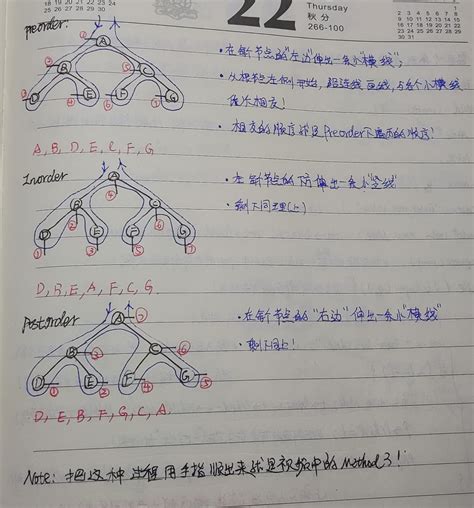 18 19 20 21 22 23 24
25 26 27 28 29 30
22
Thursday
秋分
266-100
preorder:
A
B
C
D
E
F
G
A, B, D, E, C, F, G
·在每个节点的"左边"伸出一条小"横线";
·从根节点左侧开始，画线，与每个小横线
依次相交！
·相交的顺序就是Preorder下遍历的顺序！
Inorder
A
B
C
D
E
F
G
D, B, E, A, F, C, G
·在每个节点的下方伸出一条小"竖线"
·剩下同理(上)
Postorder
A
B
C
D
E
F
G
D, E, B, F, G, C, A
·在每个节点的"右边"伸出一条小"横线"
·剩下同上！
Note: 把这种过程用手指顺出来就是视频中的Method 3!